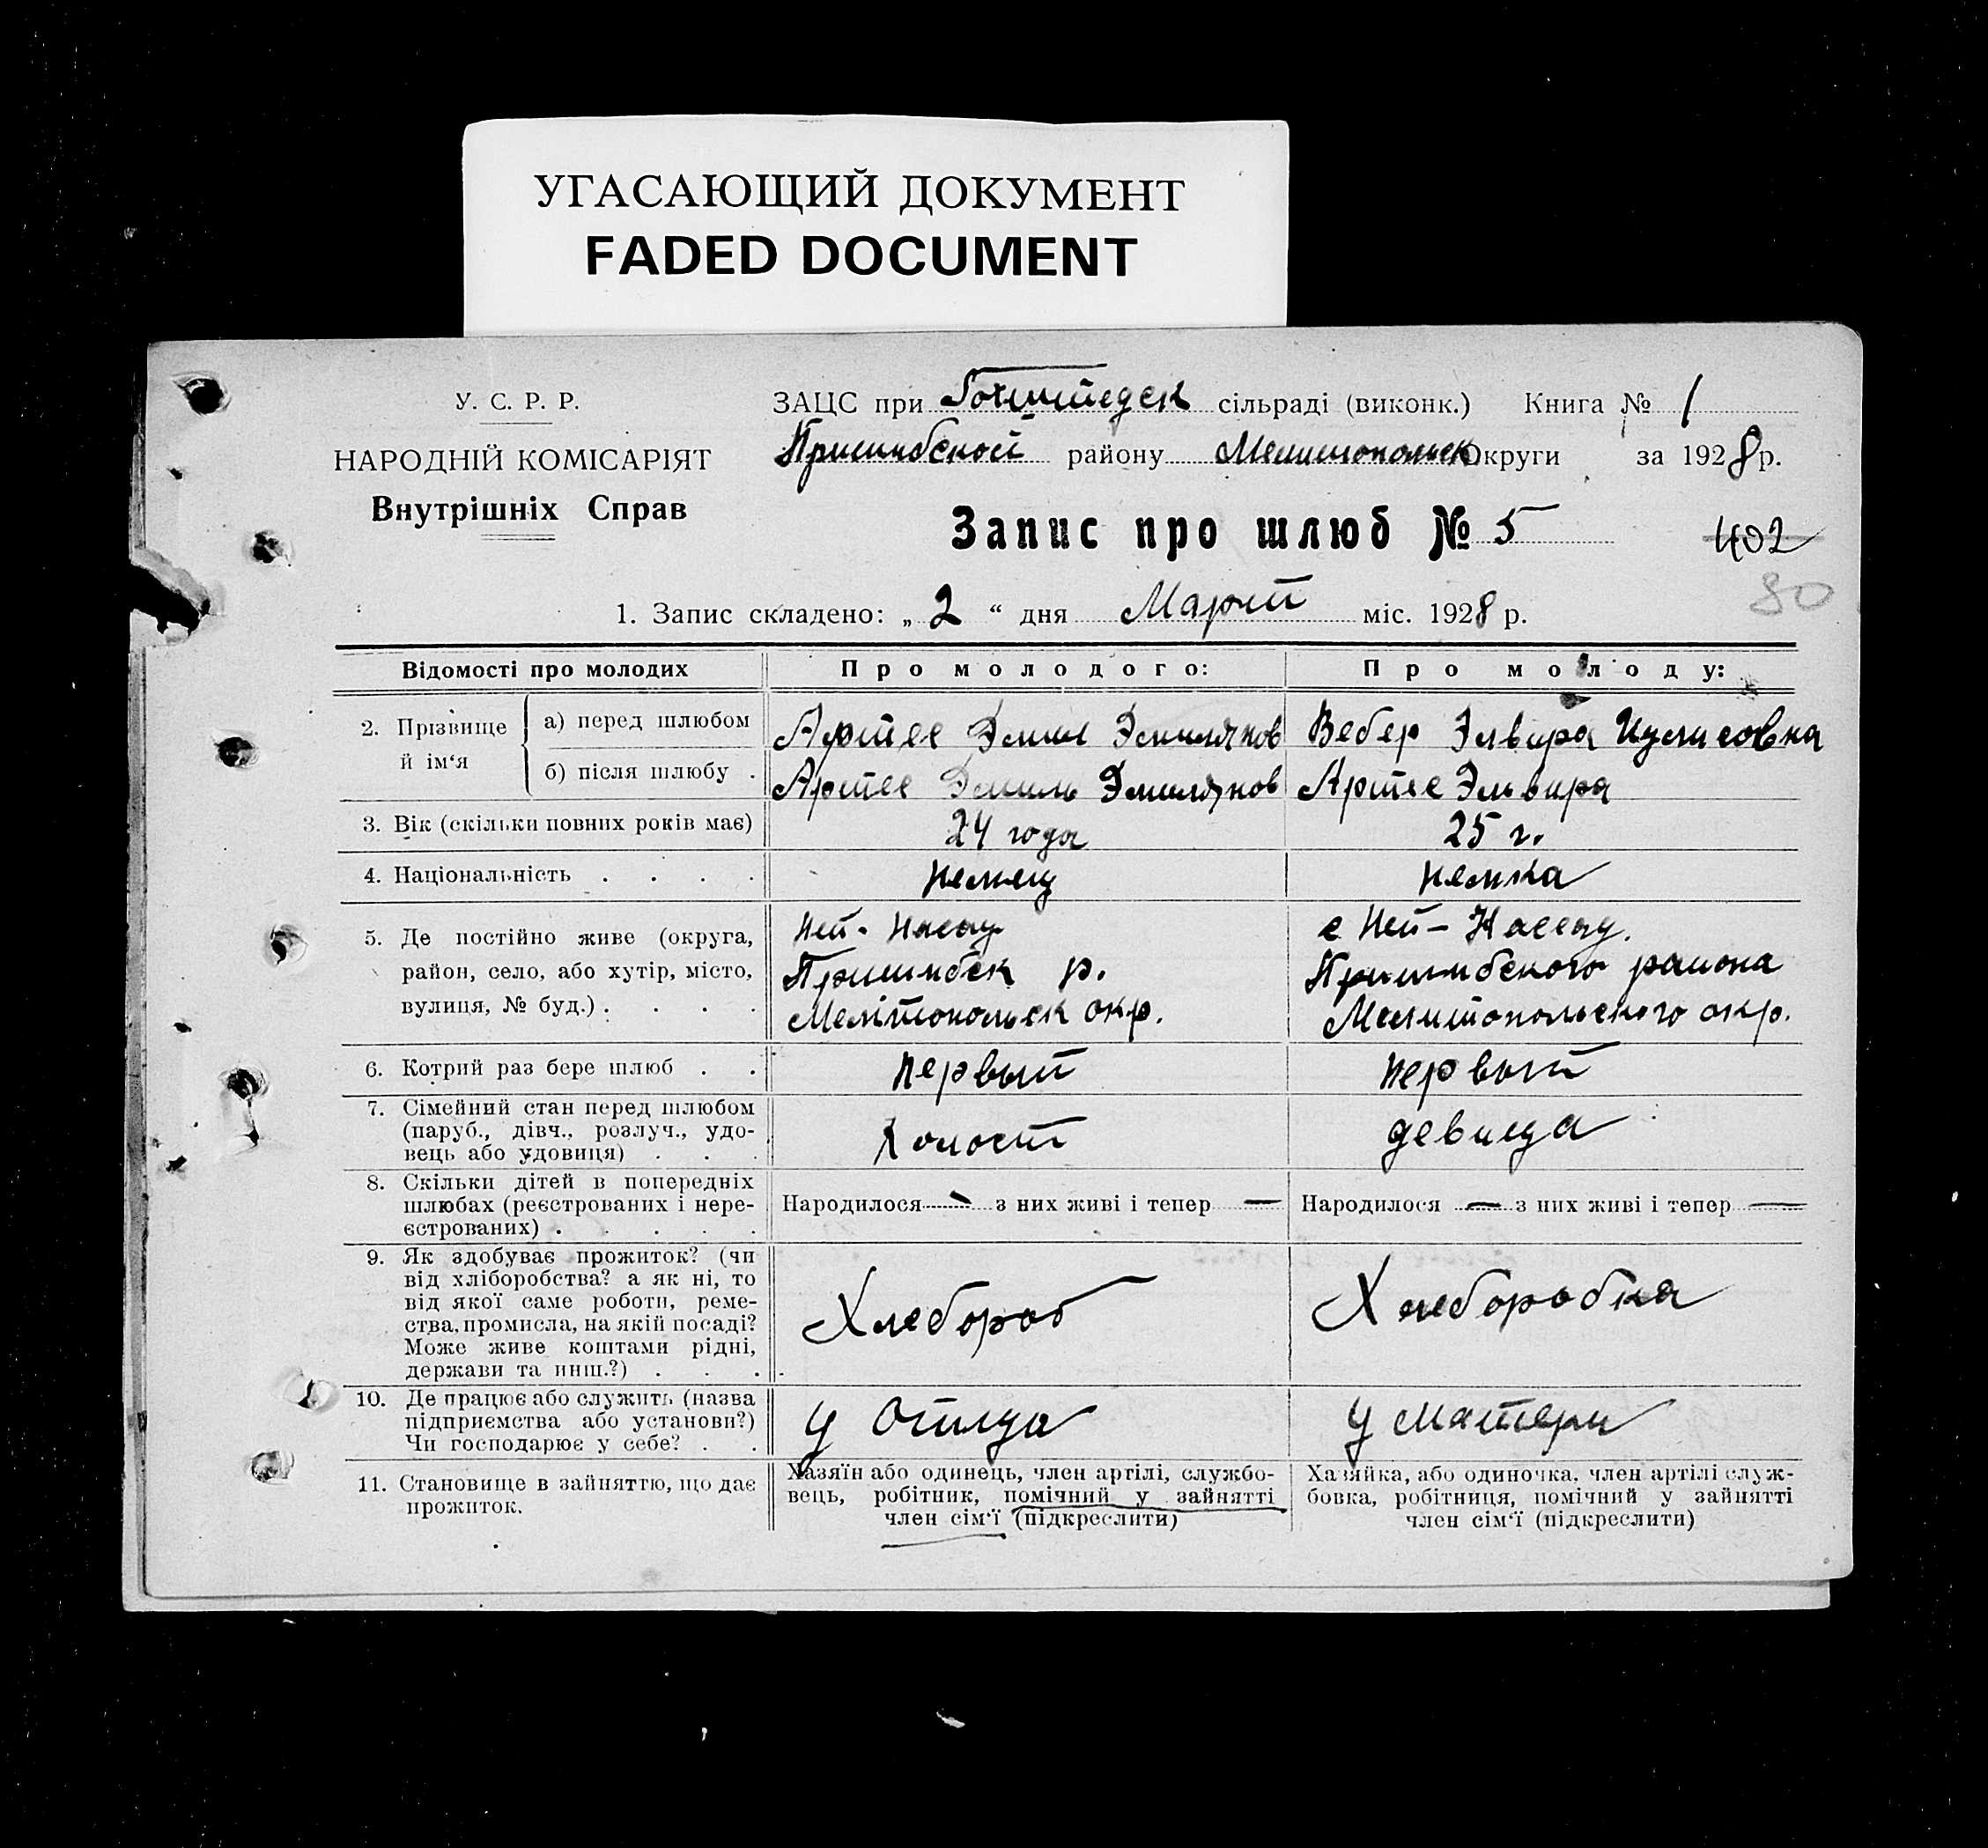 УГАСАЮЩИЙ ДОКУМЕНТ
FADED DOCUMENT
У. С. Р. Р.
НАРОДНІЙ КОМІСАРІЯТ
Внутрішніх Справ
ЗАЦС при Гохштедск сільраді (виконк.) Книга № 1
Пришибской району Мелитопольск Округи за 1928 р.
Запис про шлюб № 5
402
80
1. Запис складено: „ 2 “ дня Март міс. 1928 р.
Відомості про молодих
Про молодого:
Про молоду:
2. Прізвище й ім‘я
а) перед шлюбом
Артес Эмил Эмильянов
Вебер Эльвира
б) після шлюбу .
Артес Эмиль Эмильянов
Артес Эльвира
3. Вік (скільки повних років має)
24 года
25 г.
4. Національність . . . .
немец
немка
5. Де постійно живе (округа,
район, село, або хутір, місто,
вулиця, № буд.) . . . .
Ней - Насау
Пришибск р.
Мелітопольск окр.
с Ней - Нассау.
Пришибского раиона
Мелитопольского окр.
6. Котрий раз бере шлюб . .
первый
первый
7. Сімейний стан перед шлюбом
(паруб., дівч., розлуч., удо-
вець або удовиця) . . .
Холост
девица
8. Скільки дітей в попередніх
шлюбах (реєстрованих і нере-
єстрованих) . . . . .
Народилося — з них живі і тепер —
Народилося — з них живі і тепер —
9. Як здобуває прожиток? (чи
від хліборобства? а як ні, то
від якої саме роботи, реме-
ства, промисла, на якій посаді?
Може живе коштами рідні,
держави та инш.?) . . .
Хлебороб
Хлеборобка
10. Де працює або служить (назва
підприємства або установи?)
Чи господарює у себе? . .
у Отца
у Матери
11. Становище в зайняттю, що дає
прожиток.
Хазяїн або одинець, член артілі, службо-
вець, робітник, помічний у зайнятті
член сім‘ї (підкреслити)
Хазяйка, або одиночка, член артілі служ-
бовка, робітниця, помічний у зайнятті
член сім‘ї (підкреслити)